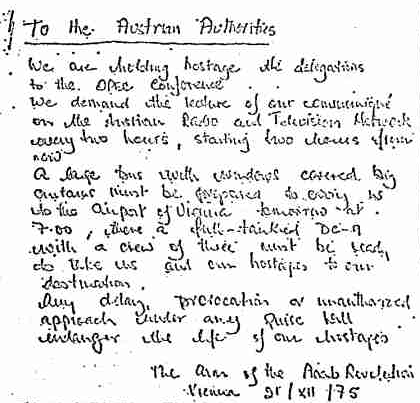 To the Austrian Authorities
We are holding hostage the delegations
to the OPEC Conference.
We demand the lecture of our communiqué
on the Austrian Radio and Television Network
every two hours, starting two hours from
now
A large bus with windows covered by
curtains must be prepared to carry us
to the Airport of Vienna tomorrow at
7.00, where a full-tanked DC-9
with a crew of three must be ready
to take us and our hostages to our
destination.
Any delay, provocation or unauthorized
approach under any guise will
endanger the life of our hostages
The Arm of the Arab Revolution
Vienna 21/XII/75